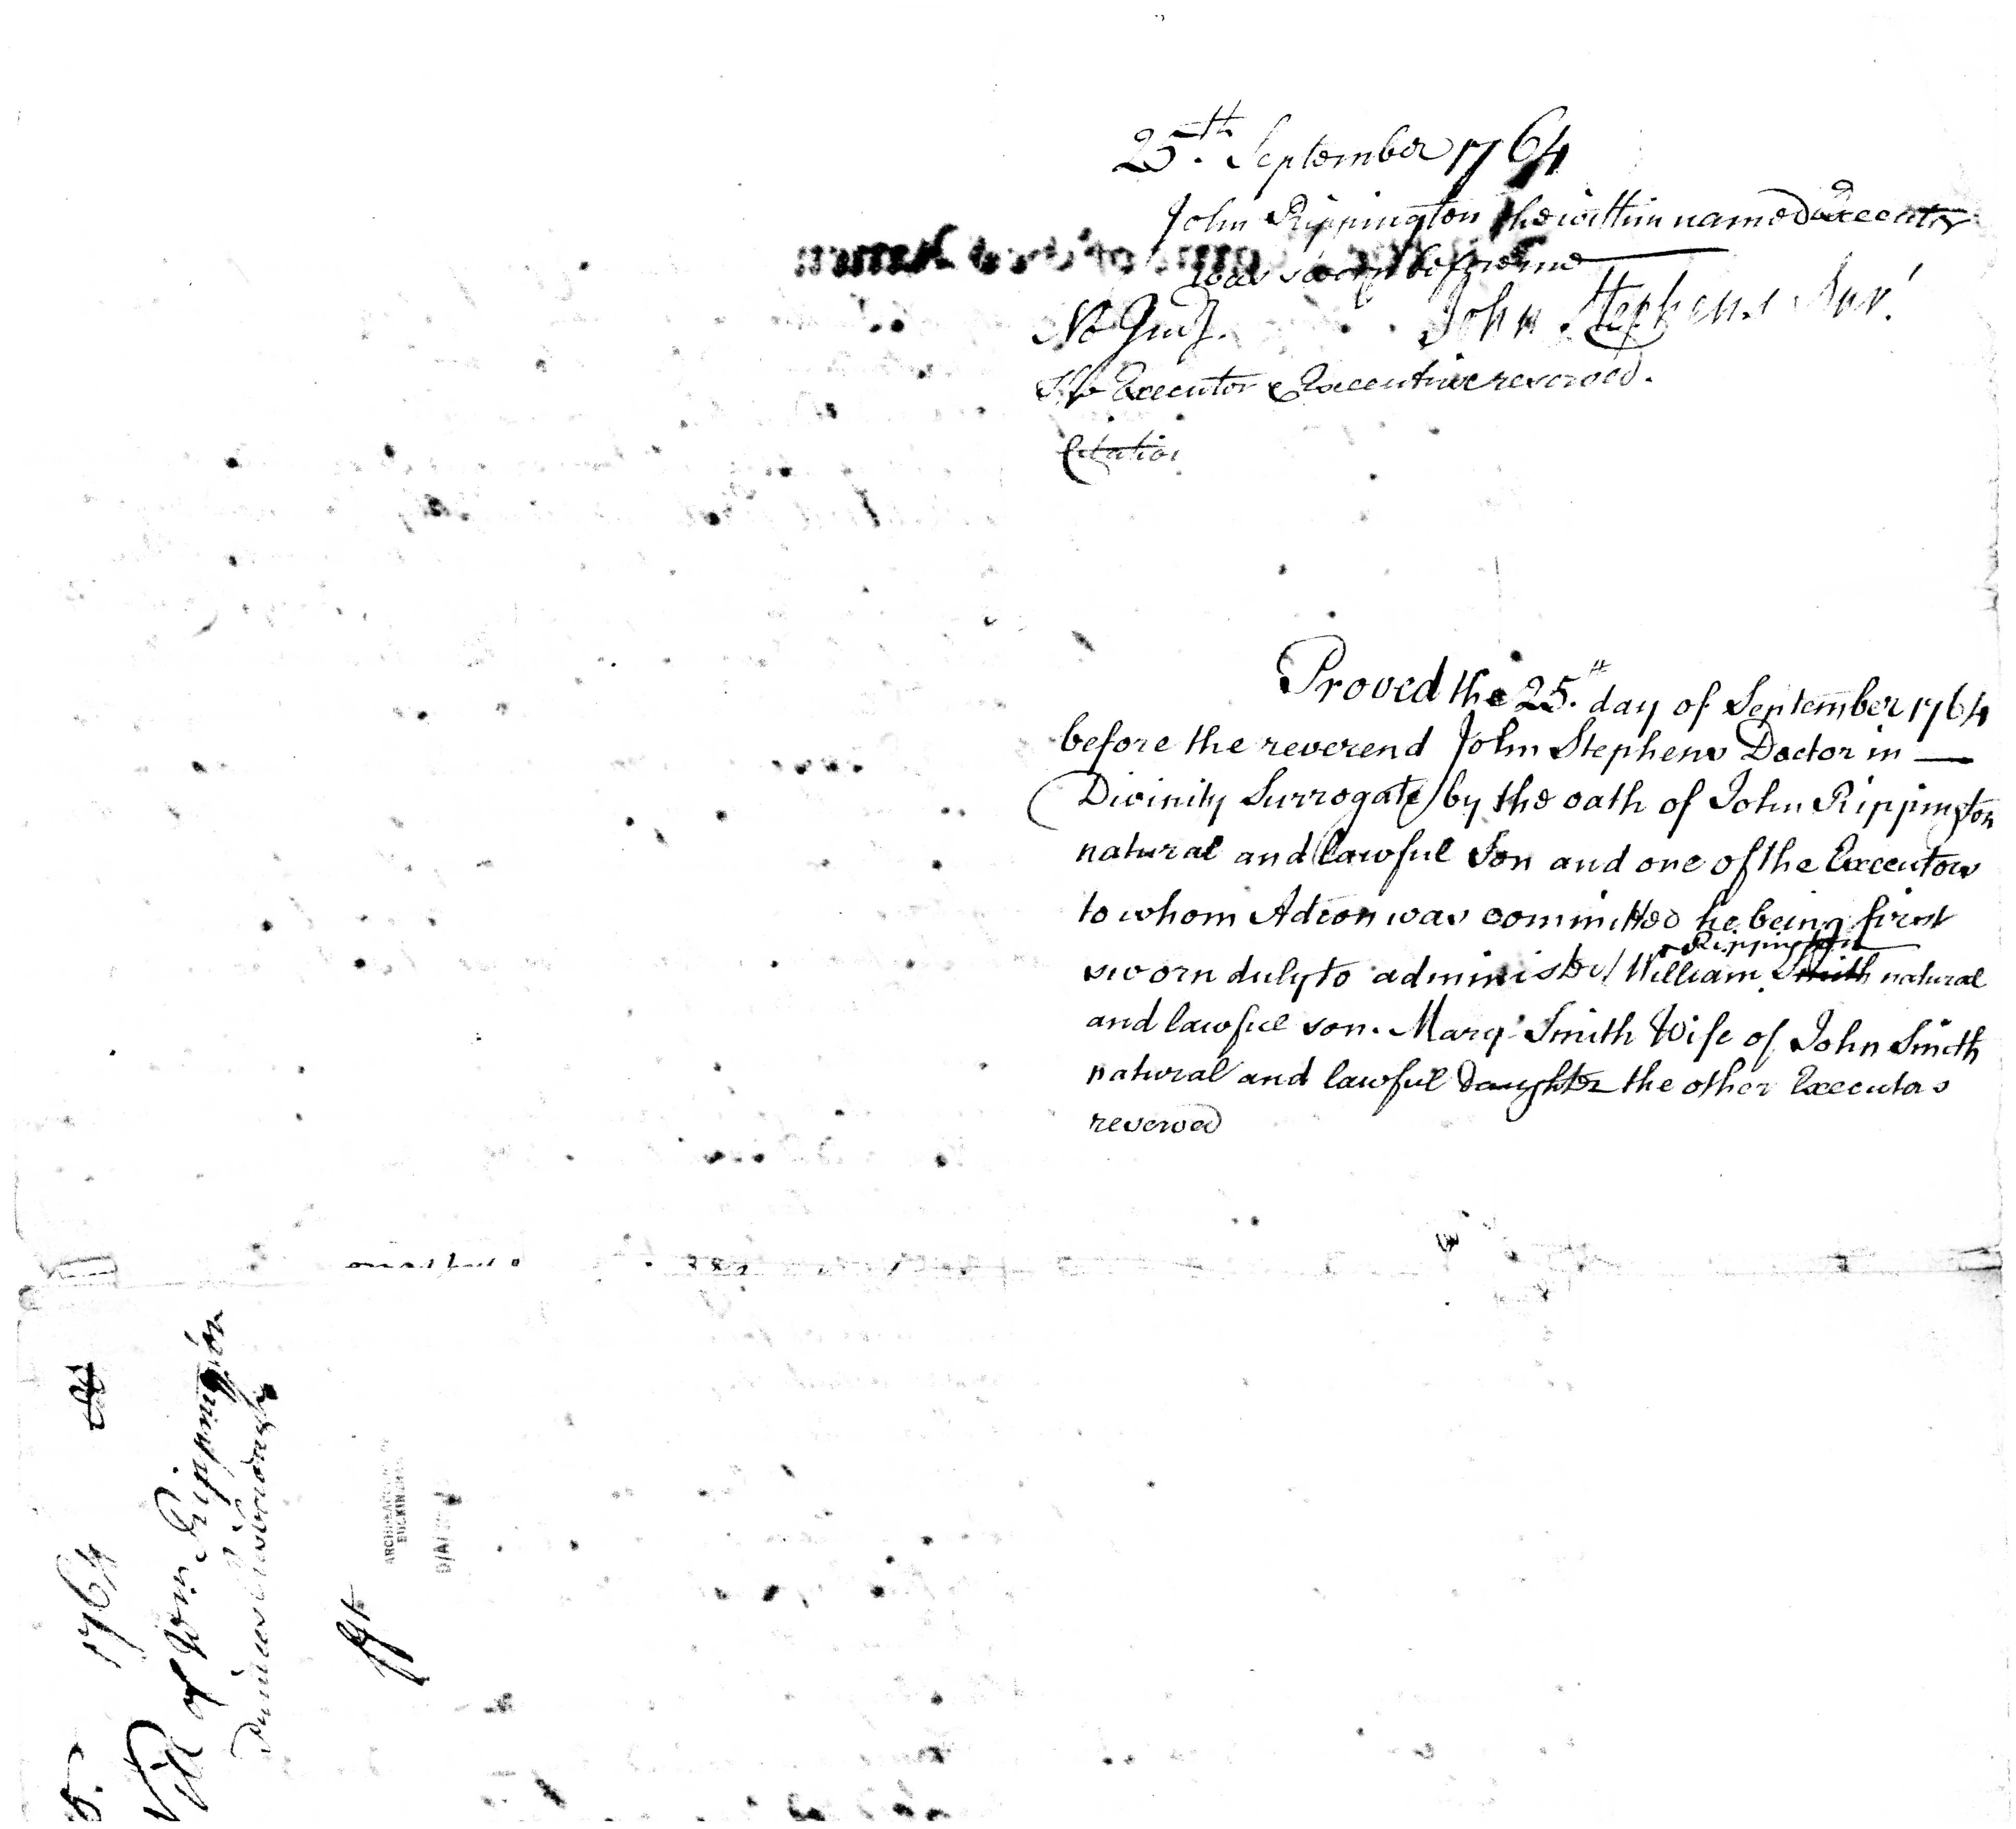 25.th September 1764
John Rippington the within named Executor
was sworn before me
John Stephens Surr.
Executor & Executrix reserved.
Citation
Proved the 25.th day of September 1764
before the reverend John Stephens Doctor in
Divinity Surrogate by the oath of John Rippington
natural and lawful Son and one of the Executors
to whom Adcon was committed he being first
Rippington
sworn duly to administer William Smith natural
and lawful son. Mary Smith Wife of John Smith
natural and lawful daughter the other Executors
reserved
5.
1764
Will of Wm. Rippington
ARCHDEACONRY OF
BUCKINGHAM
D/A/